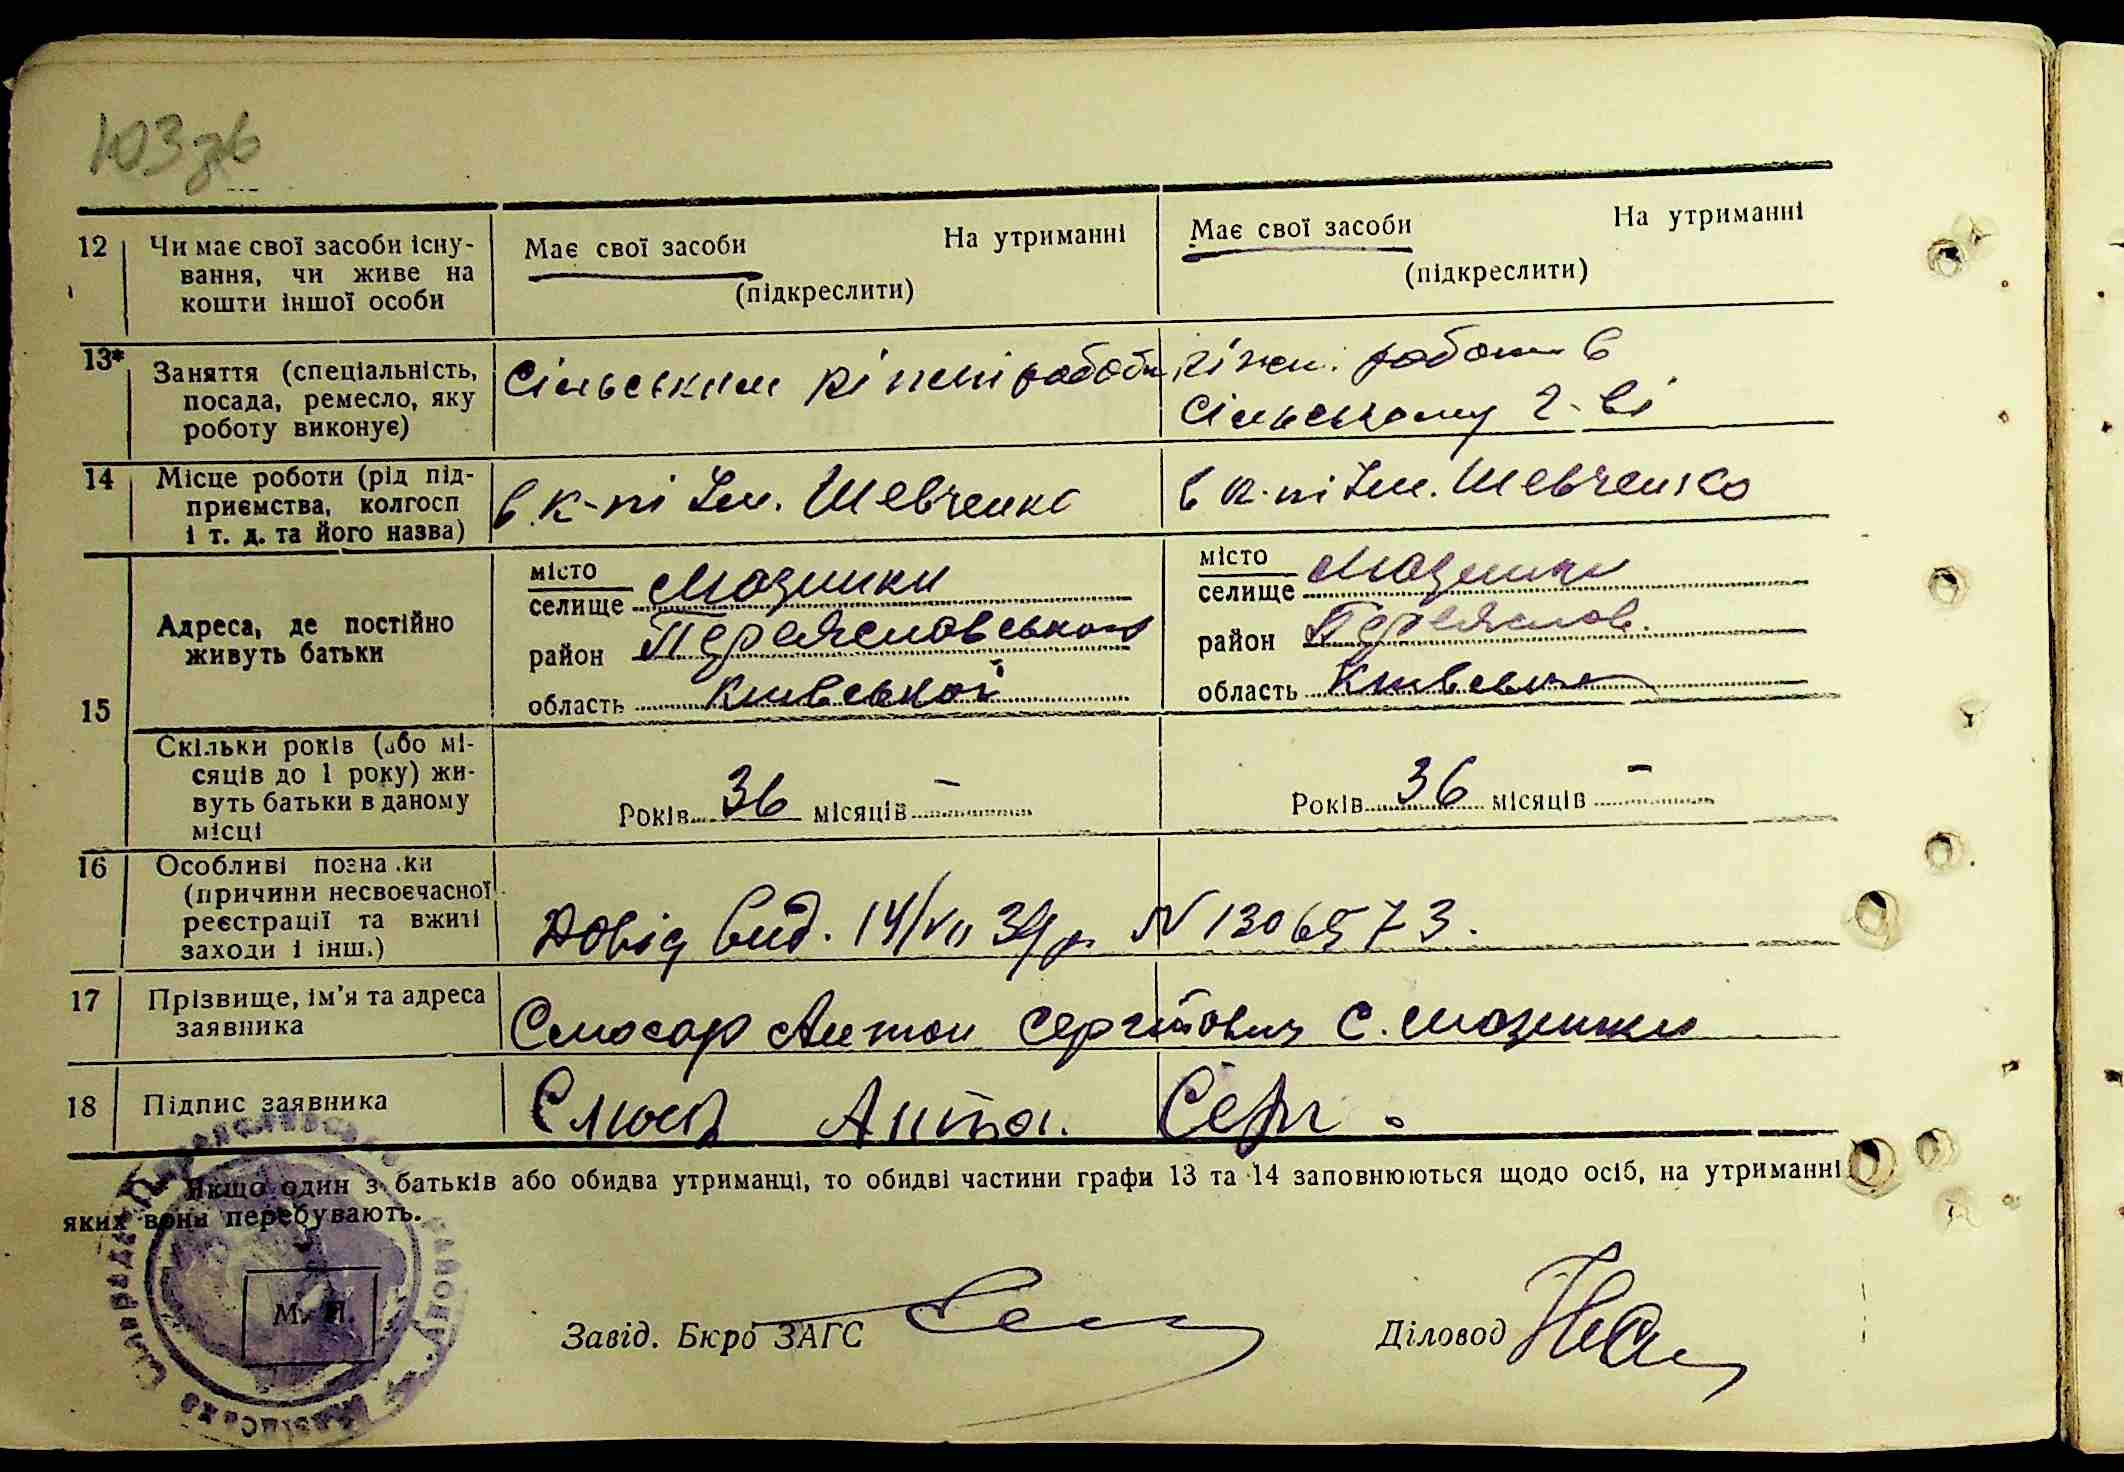 103 зв
12 Чи має свої засоби існу-
вання, чи живе на
кошти іншої особи
Має свої засоби На утриманні
(підкреслити)
Має свої засоби На утриманні
(підкреслити)
13* Заняття (спеціальність,
посада, ремесло, яку
роботу виконує)
Сільським різні роботи
різн. роботи в
сільському г-ві
14 Місце роботи (рід під-
приємства, колгосп
і т. д. та його назва)
в к-пі Ім. Шевченко
в к-пі Ім. Шевченко
15 Адреса, де постійно
живуть батьки
місто
селище Мазинки
район Переяславського
область Київської
місто
селище Мазинки
район Переяслав.
область Київська
Скільки років (або мі-
сяців до 1 року) жи-
вуть батьки в даному
місці
Років 36 місяців –
Років 36 місяців –
16 Особливі познаки
(причини несвоєчасної
реєстрації та вжиті
заходи і інш.)
Довід вид. 14/VII 39 р. N 1306573.
17 Прізвище, ім'я та адреса
заявника
Слюсар Антон Сергійович С. Мазинки
18 Підпис заявника
Слюса Анто. Серг.
Якщо один з батьків або обидва утриманці, то обидві частини графи 13 та 14 заповнюються щодо осіб, на утриманні
яких вони перебувають.
М. П.
Завід. Бюро ЗАГС
Діловод